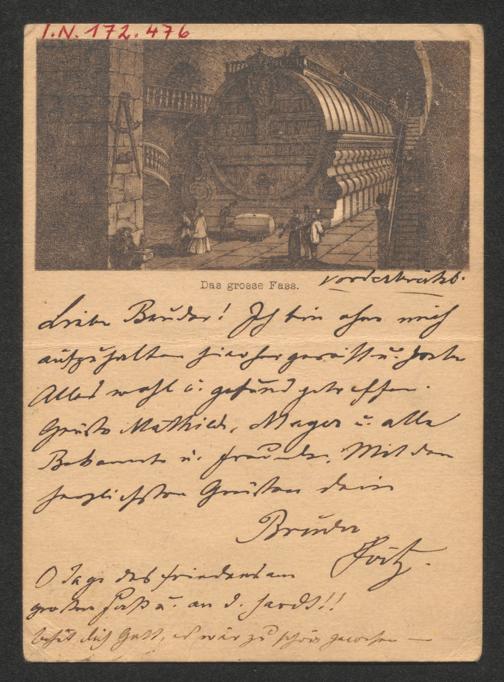 I.N. 172.476
Das grosse Fass.
Liebe Bruder! Ich bin ohne mich
aufzuhalten hierher gereist u. habe
Alles wohl u. gesund getroffen.
Grüße Mathilde, Mayer u. alle
Bekannte u. Freunde. Mit den
herzlichsten Grüßen dein
Bruder
Fritz.
O Tage des Friedens am
großen Faß u. an d. Hardt!!
behüt dich Gott, es wär zu schön gewesen —